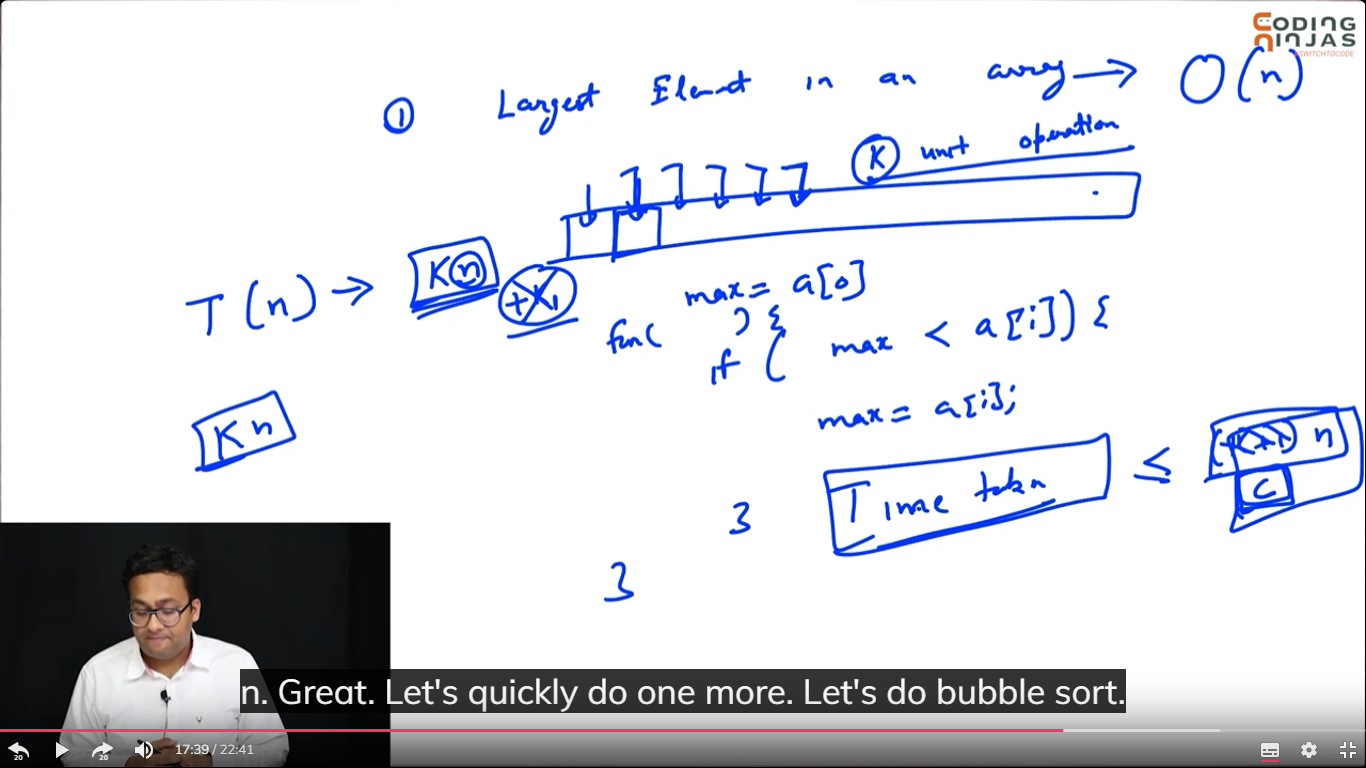 CODING
NINJAS
#SWITCHTOCODE
① Largest Element in an array → O(n)
K unit operation
T(n) → Kn +K₁
max = a[0]
for( ) {
if ( max < a[i]) {
max = a[i];
Kn
Time taken ≤ (K+1) n
C
}
}
n. Great. Let's quickly do one more. Let's do bubble sort.
20
20
17:39 / 22:41